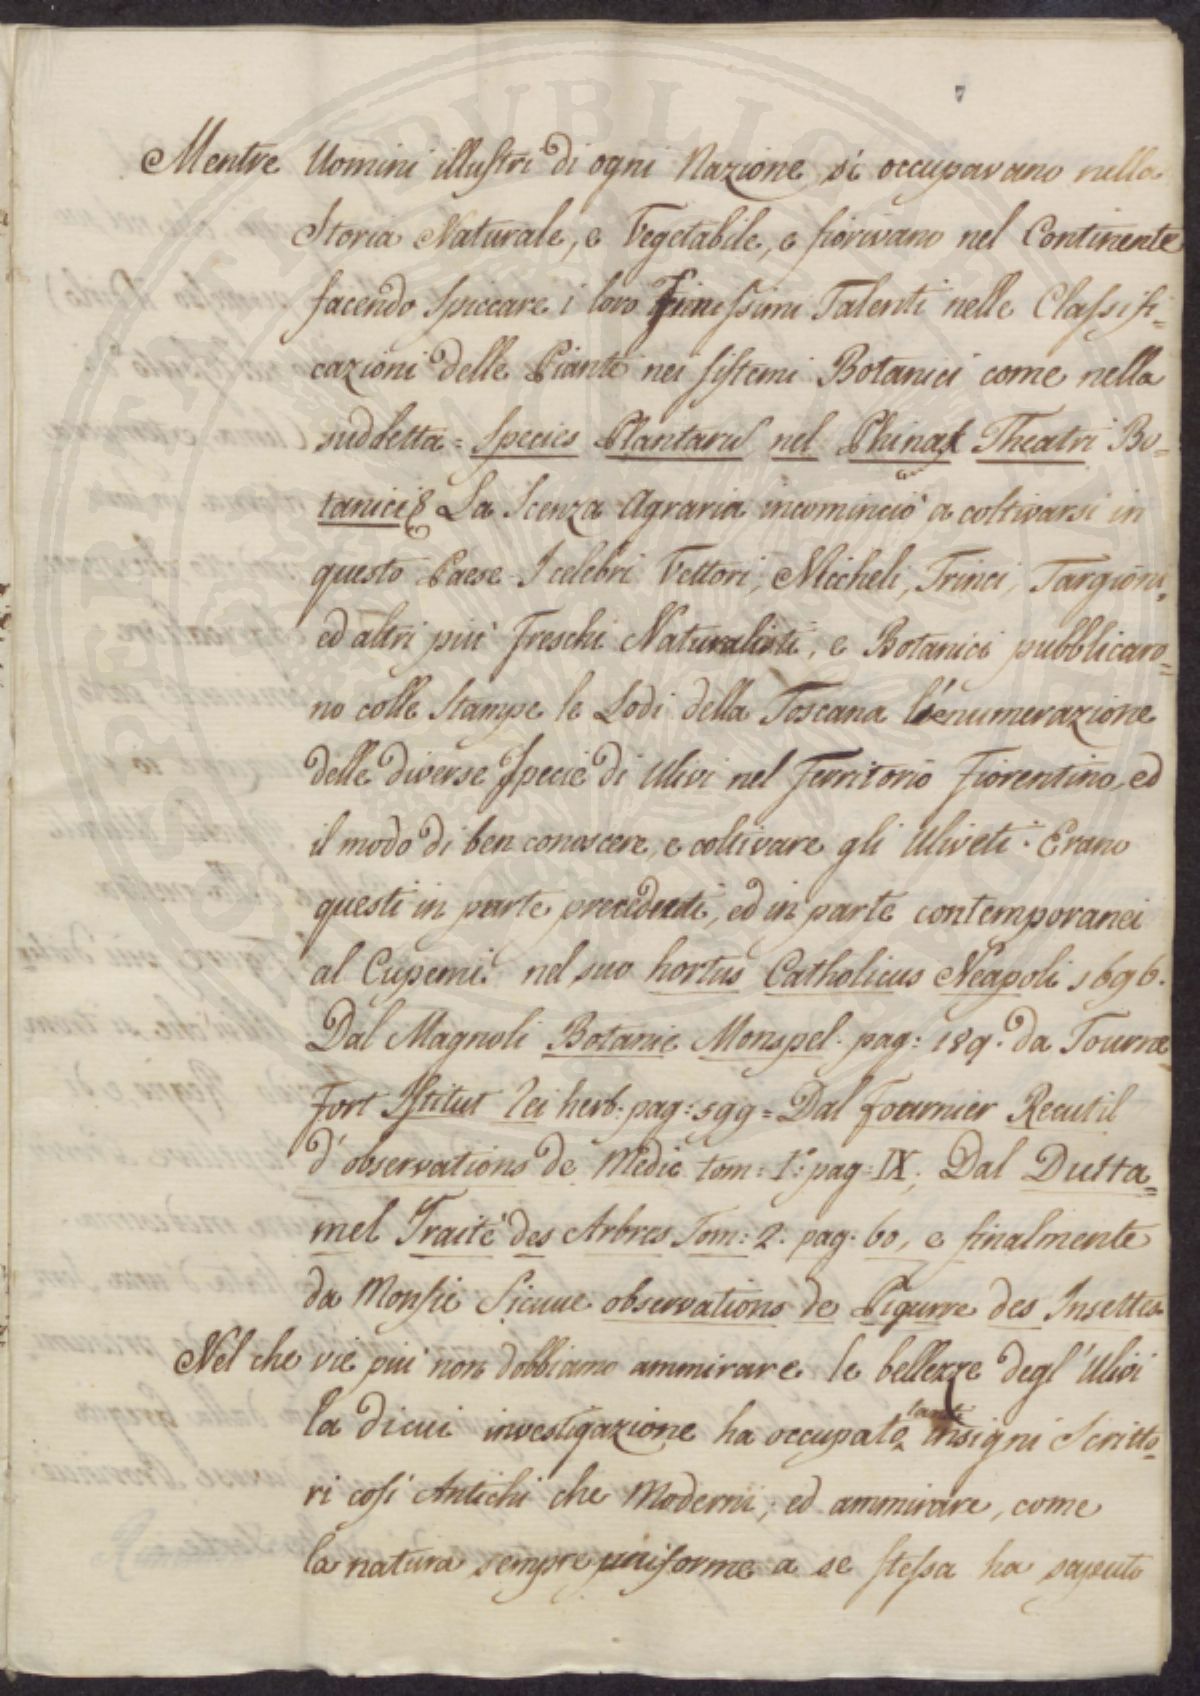 7
Mentre Uomini illustri di ogni Nazione si occupavano nella
Storia Naturale, e Vegetabile, e fiorivano nel Continente
facendo spiccare i loro finissimi Talenti nelle Classifi-
cazioni delle Piante nei sistemi Botanici come nella
suddetta = Species Plantaru nel Phinax Theatri Bo=
tanici La Scenza Agraria incominciò a coltivarsi in
questo Paese I celebri Vettori, Micheli, Trinci, Targioni,
ed altri più freschi Naturalisti, e Botanici pubblicaro=
no colle Stampe le Lodi della Toscana l'enumerazione
delle diverse Specie di Ulivi nel Territorio Fiorentino, ed
il modo di ben conoscere, e coltivare gli Uliveti. Erano
questi in parte precedenti, ed in parte contemporanei
al Cupemi nel suo hortus Catholicus Neapoli 1696.
Dal Magnoli Botanic Monspel. pag: 189. da Tourne
Fort Istitut rei herb: pag: 599 = Dal Fournier Recutil
d'observations de Medic tom: 1.° pag: IX, Dal Dutta=
mel Traité des Arbres Tom: 2. pag. 60, e finalmente
da Monsie Sieuue observations de Pigurre des Insettes
Nel che vie più non dobbiamo ammirare le bellezze degl'Ulivi
la dicui investigazione ha occupato tanti insigni Scritto=
ri così Antichi che Moderni, ed ammirare, come
la natura sempre uniforme a se stessa ha saputo